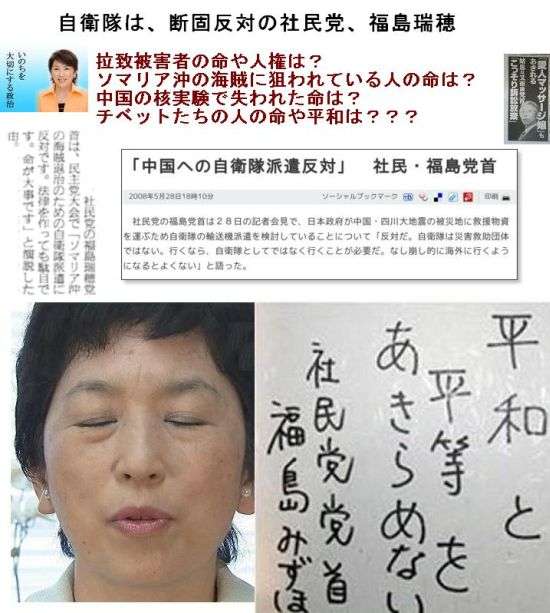 自衛隊は、断固反対の社民党、福島瑞穂
いのちを
大切にする政治
拉致被害者の命や人権は？
ソマリア沖の海賊に狙われている人の命は？
中国の核実験で失われた命は？
チベットたちの人の命や平和は？？？
「愛人マッサージ嬢」も
あきれる
こっそり訴訟放棄
「中国への自衛隊派遣反対」　社民・福島党首
2008年5月28日18時10分
ソーシャルブックマーク
印刷
社民党の福島党首は２８日の記者会見で、日本政府が中国・四川大地震の被災地に救援物資
を運ぶため自衛隊の輸送機派遣を検討していることについて「反対だ。自衛隊は災害救助団体
ではない。行くなら、自衛隊としてではなく行くことが必要だ。なし崩し的に海外に行くよう
になるとよくない」と語った。
社民党の福島瑞穂党
首は、民主党大会で「ソマリア沖
の海賊退治のための自衛隊派遣に
反対です。法律を作っても駄目で
す。命が大事です」と演説した
由。
平和と
平等を
あきらめない
社民党党首
福島みずほ